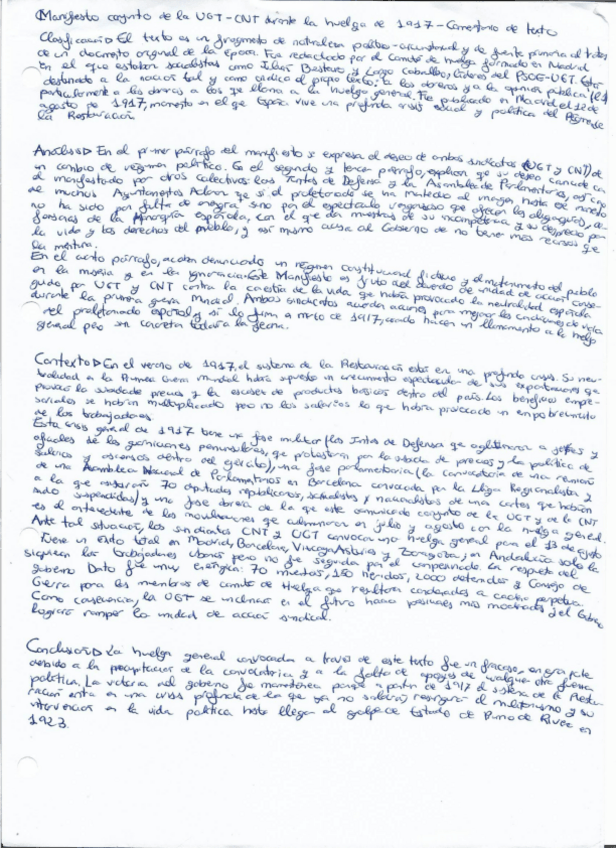 Manifiesto conjunto de la UGT-CNT durante la huelga de 1917 - Comentario de texto
Clasificación▷ El texto es un fragmento de naturaleza político-circunstancial y de fuente primaria al tratarse
de un documento original de la época. Fue redactado por el Comité de huelga formado en Madrid
en el que estaban socialistas como Julián Besteiro y Largo Caballero, líderes del PSOE-UGT. Está
destinado a la nación tal y como indica el propio texto: "a los obreros y a la opinión pública" y
particularmente a los obreros a los que llama a la huelga general. Fue publicado en Madrid el 12 de
agosto de 1917, momento en el que España vive una profunda crisis social y política del Régimen de
la Restauración.
Análisis▷ En el primer párrafo del manifiesto se expresa el deseo de ambos sindicatos (UGT y CNT) de
un cambio de régimen político. En el segundo y tercer párrafo, explican que su deseo coincide con
el manifestado por otros colectivos: las Juntas de Defensa y la Asamblea de Parlamentarios, así como
de muchos Ayuntamientos. Aclaran que si el proletariado se ha mantenido al margen hasta ese momento
no ha sido por falta de energía, sino por el espectáculo vergonzoso que ofrecen los oligarquías,
de la Monarquía española, con el que da muestras de su incompetencia y su desprecio por
la vida y los derechos del pueblo, y así mismo acusa al Gobierno de no tener más recursos que
la mentira.
En el cuarto párrafo, acaban denunciando un régimen constitucional ficticio y el mantenimiento del pueblo
en la miseria y en la ignorancia. Este Manifiesto es fruto del acuerdo de unidad de acción conse-
guido por UGT y CNT contra la carestía de la vida que había provocado la neutralidad española
durante la primera guerra Mundial. Ambos sindicatos acuerdan acciones para mejorar las condiciones de vida
del proletariado español y así lo firman en marzo de 1917, cuando hacen un llamamiento a la huelga
general pero sin concretar todavía la fecha.
Contexto▷ En el verano de 1917, el sistema de la Restauración está en una profunda crisis. Su neu-
tralidad a la Primera Guerra Mundial había supuesto un crecimiento espectacular de las exportaciones que
provocó la subida de precios y la escasez de productos básicos dentro del país. Los beneficios empre-
sariales se habían multiplicado pero no los salarios, lo que había provocado un empobrecimiento
de los trabajadores.
Esta crisis general de 1917 tiene una fase militar (las Juntas de Defensa que aglutinaron a jefes y
oficiales de las guarniciones peninsulares, que protestaron por la subida de precios y la política de
salarios y ascensos dentro del ejército), una fase parlamentaria (la convocatoria de una reunión
de una Asamblea Nacional de Parlamentarios en Barcelona convocada por la Lliga Regionalista y
a la que acudirán 70 diputados republicanos, socialistas y nacionalistas de unas cortes que habían
sido suspendidas) y una fase obrera de la que este comunicado conjunto de la UGT y de la CNT
es el antecedente de las movilizaciones que culminaron en julio y agosto con la huelga general.
Ante tal situación, los sindicatos CNT y UGT convocan una huelga general para el 13 de agosto
Tiene un éxito total en Madrid, Barcelona, Vizcaya, Asturias y Zaragoza, en Andalucía solo la
siguieron los trabajadores urbanos pero no fue seguida por el campesinado. La respuesta del
gobierno Dato fue muy enérgica: 70 muertos, 150 heridos, 2.000 detenidos y Consejo de
Guerra para los miembros de comité de Huelga que resultaron condenados a cadena perpetua.
Como consecuencia, la UGT se inclinará en el futuro hacia posiciones más moderadas y el Gobierno
logrará romper la unidad de acción sindical.
Conclusión▷ La huelga general convocada a través de este texto fue un fracaso, en gran parte
debido a la precipitación de la convocatoria y a la falta de apoyos de cualquier otra fuerza
política. La victoria del gobierno fue momentánea porque a partir de 1917 el sistema de la Restau-
ración entra en una crisis profunda de la que ya no saldrá; resurgirá el militarismo y su
intervención en la vida política hasta llegar al golpe de Estado de Primo de Rivera en
1923.